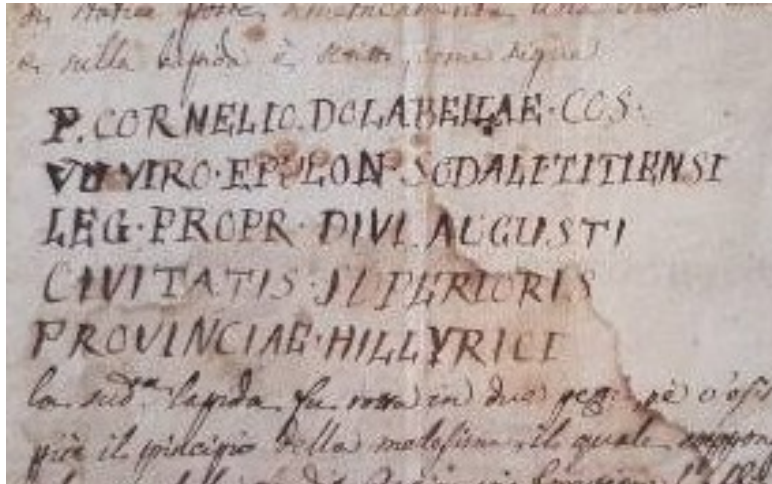 di statue poste
sulla lapida è scritto, come segue
P. CORNELIO. DOLABELLAE · COS ·
VII VIRO · EPULON · SODALITITIENSI
LEG · PROPR · DIVI AUGUSTI
CIVITATIS · SUPERIORIS
PROVINCIAE · HILLYRICE
la sud.ta lapida fu rotta in due pezzi, nè v'è
più il principio della medesima, il quale